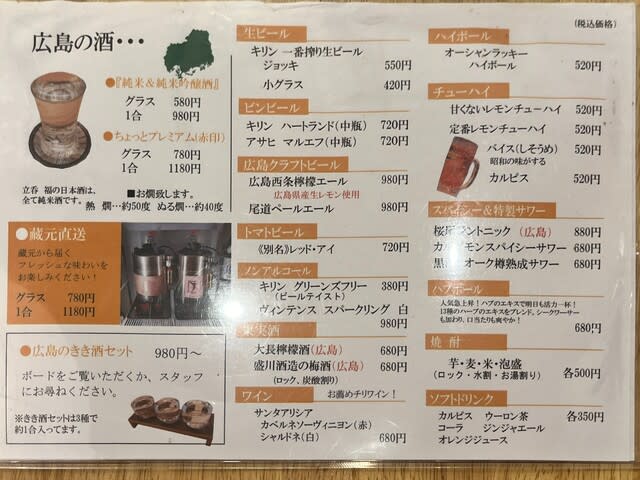 広島の酒・・・
●『純米&純米吟醸酒』
グラス 580円
1合 980円
●ちょっとプレミアム(赤印)
グラス 780円
1合 1180円
立呑 福の日本酒は、
全て純米酒です。
■お燗致します。
熱 燗…約50度 ぬる燗…約40度
●蔵元直送
蔵元から届く
フレッシュな味わいを
お楽しみください!
グラス 780円
1合 1180円
●広島のきき酒セット 980円~
ボードをご覧いただくか、スタッフ
にお尋ねください。
※きき酒セットは3種で
約1合入ってます。
生ビール
キリン 一番搾り生ビール
ジョッキ 550円
小グラス 420円
ビンビール
キリン ハートランド(中瓶) 720円
アサヒ マルエフ(中瓶) 720円
広島クラフトビール
広島西条檸檬エール 980円
広島県産生レモン使用
尾道ペールエール 980円
トマトビール
《別名》レッド・アイ 720円
ノンアルコール
キリン グリーンズフリー 380円
(ビールテイスト)
ヴィンテンス スパークリング 白
680円
果実酒
大長檸檬酒(広島) 680円
盛川酒造の梅酒(広島) 680円
(ロック、炭酸割り)
ワイン お薦めチリワイン!
サンタアリシア
カベルネソーヴィニヨン(赤)
シャルドネ(白) 680円
(税込価格)
ハイボール
オーシャンラッキー
ハイボール 520円
チューハイ
甘くないレモンチューハイ 520円
定番レモンチューハイ 520円
バイス(しそうめ) 520円
昭和の味がする
カルピス 520円
スパイシー&特製サワー
桜尾ジントニック(広島) 880円
カルダモンスパイシーサワー 680円
黒 オーク樽熟成サワー 680円
ハブボール
人気急上昇!ハブのエキスで明日も活力一杯!
13種のハーブのエキスをブレンド、シークワーサー
も加わり、口当たりも爽やか!
680円
焼 酎
芋・麦・米・泡盛
(ロック・水割・お湯割り) 各500円
ソフトドリンク
カルピス ウーロン茶 各350円
コーラ ジンジャエール
オレンジジュース